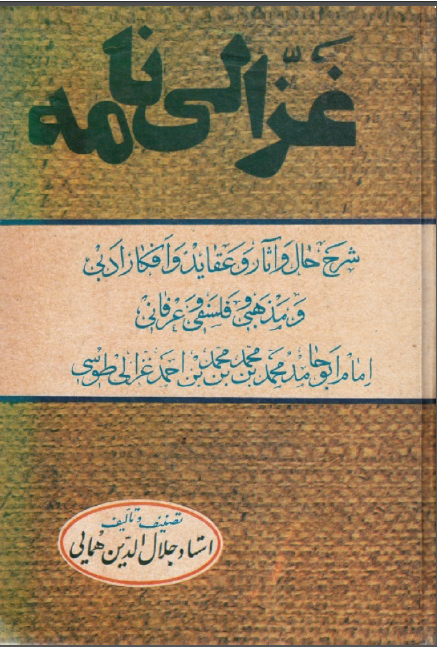 غزّالی نامه
شرح حال و آثار و عقاید و افکار ادبی
و مذهبی و فلسفی و عرفانی
امام ابوحامد محمد بن محمد بن محمد بن احمد غزالی طوسی
تصنیف و تألیف
استاد جلال الدین همایی